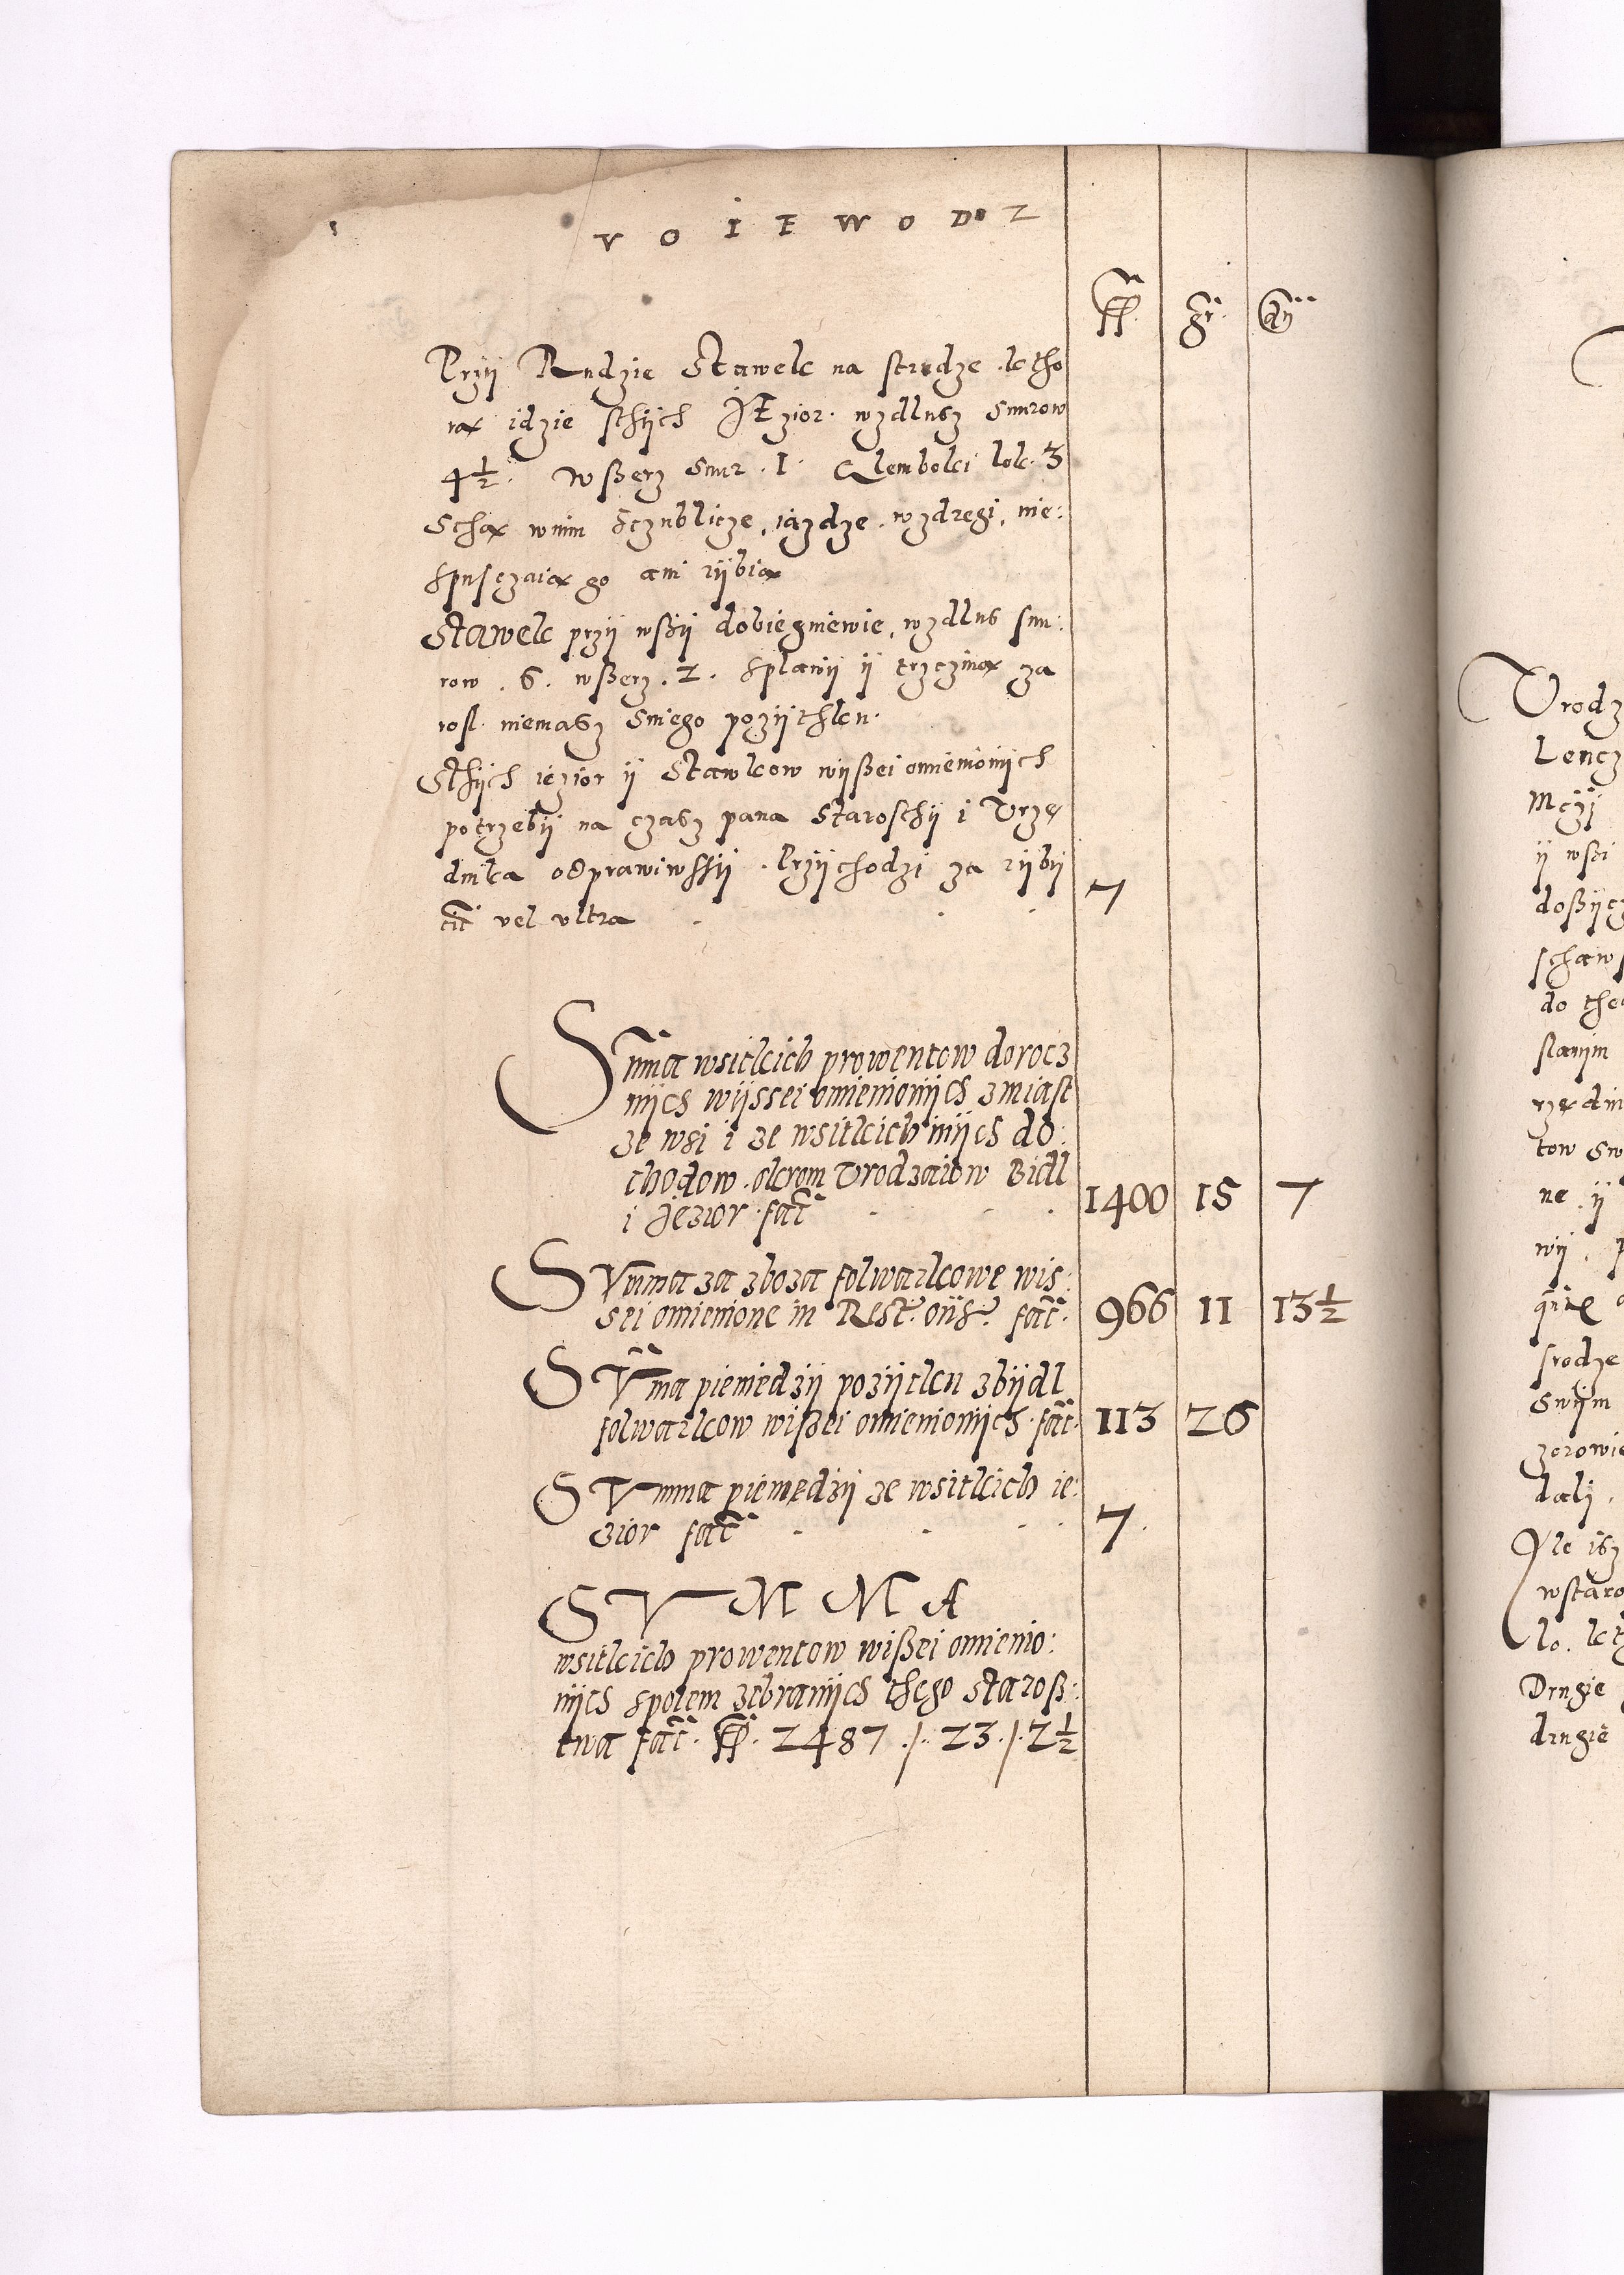 VOIEWODZ
ff. gr. dn
Przÿ Rudzie Stawek na strudze ktho
rą idzie sthÿch JEzior wzdlusz snurow
4 1/2. Wßerz snur .1. Glemboki lok. 3
Schą wnim Sczubliczе, iazdze, wzdregi, nie:
spusczaią go ani rÿbią
Stawek przÿ wßÿ dobiegniewie, wzdlus snu:
row . 6. wßerz . 2. splawÿ ÿ trzcziną za
rosl. niemasz Sniego pozÿthku.
Sthÿch iezior ÿ Stawkow wÿßei omienionÿch
potrzebÿ na czasz pana Starosthÿ i Vrzę
dnika odprawiwssÿ. Przÿchodzi za rÿbÿ
vel vltra . . . 7
Summa wsitkich prowentow dorocz
nÿch wÿssei omienionÿch z miast
ze wsi i ze wsitkich inÿch do:
chodow. okrom Vrodzaiow Bidl
i Jezior. facit . . . 1400 15 7
SVmma za zboza folwarkowe wis:
sei omienione in Rest. facit. 966 11 13 1/2
SVmma pieniedzÿ pozÿtku z bÿdl
folwarkow wißei omienionÿch. facit. 113 26
SVmma pieniędzÿ ze wsitkich ie:
zior facit . . . . 7.
SVMMA
wsitkich prowentow wißei omienio:
nÿch spolem zebranÿch thego Staroß:
twa facit. ff. 2487 ./. 23 ./. 2 1/2
Vrodz
Lencz
Mczÿ
ÿ wßi
doßÿcz
schaw
do the
slanim
rzędni
tow Sw
ne . ÿ
wÿ .
srodze
Swÿm
zorowie
dali .
Ale isz
wstaro
lo. kt
Drugie
drugie